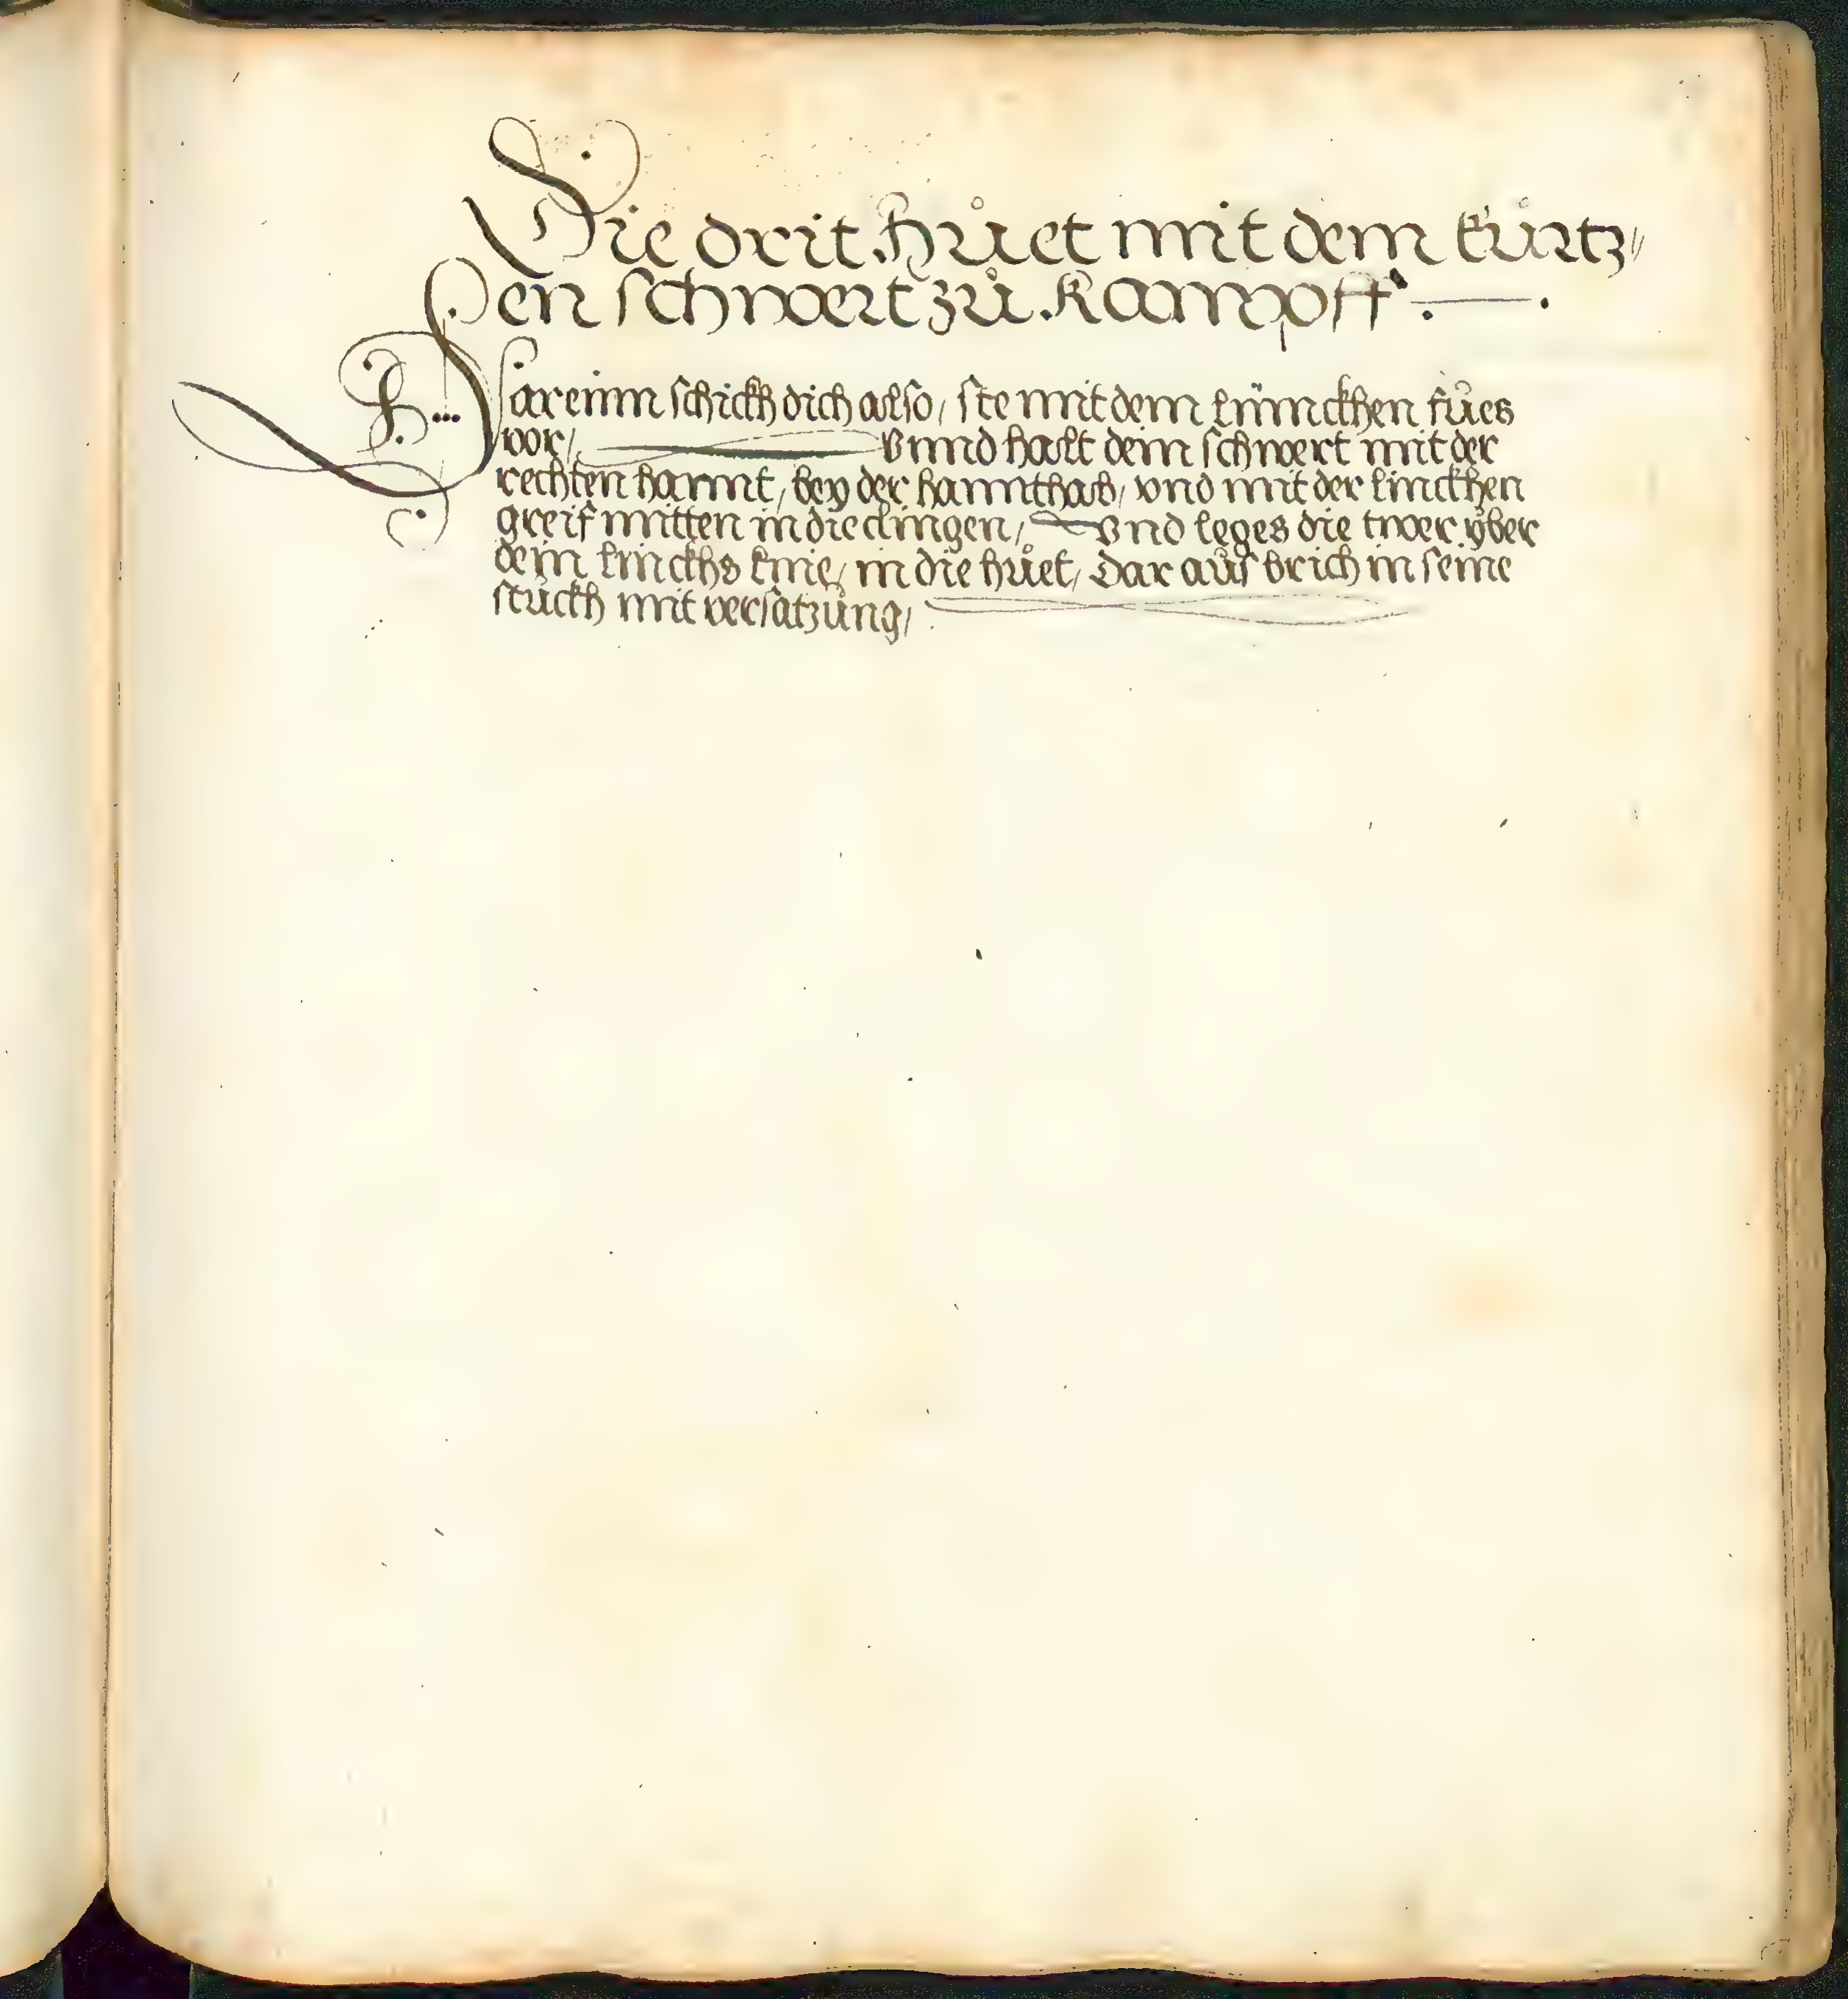 Die drit .hůet mit dem kůrtz„
en schwert zů .kampff .—.
Dareinn schickh dich also, ste mit dem linnckhen fůes
vor, Vnnd halt dein schwert mit der
rechten hannt, bey der hannthab, vnd mit der linckhen
greif mitten in die clingen, Vnd leges die twer yber
dein linckhs knie, in die hůet, Dar aůs brich in seine
stůckh mit versatzůng,